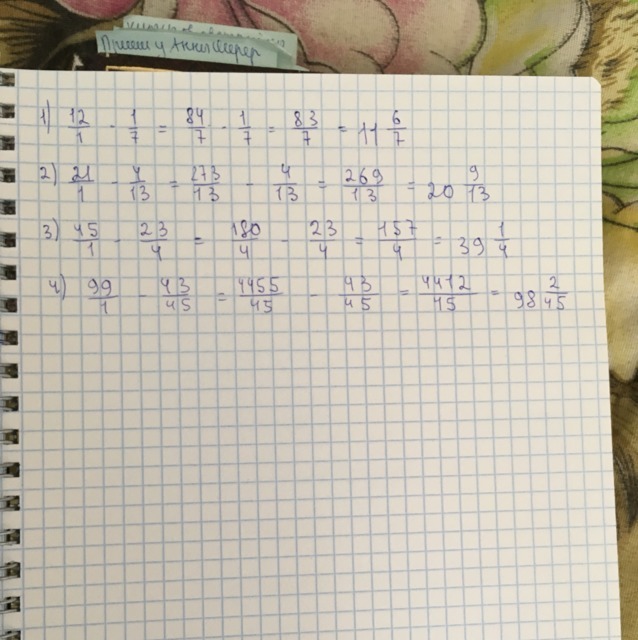 Присш у Анны Шерер
1) 12/1 - 1/7 = 84/7 - 1/7 = 83/7 = 11 6/7
2) 21/1 - 4/13 = 273/13 - 4/13 = 269/13 = 20 9/13
3) 45/1 - 23/4 = 180/4 - 23/4 = 157/4 = 39 1/4
4) 99/1 - 43/45 = 4455/45 - 43/45 = 4412/45 = 98 2/45